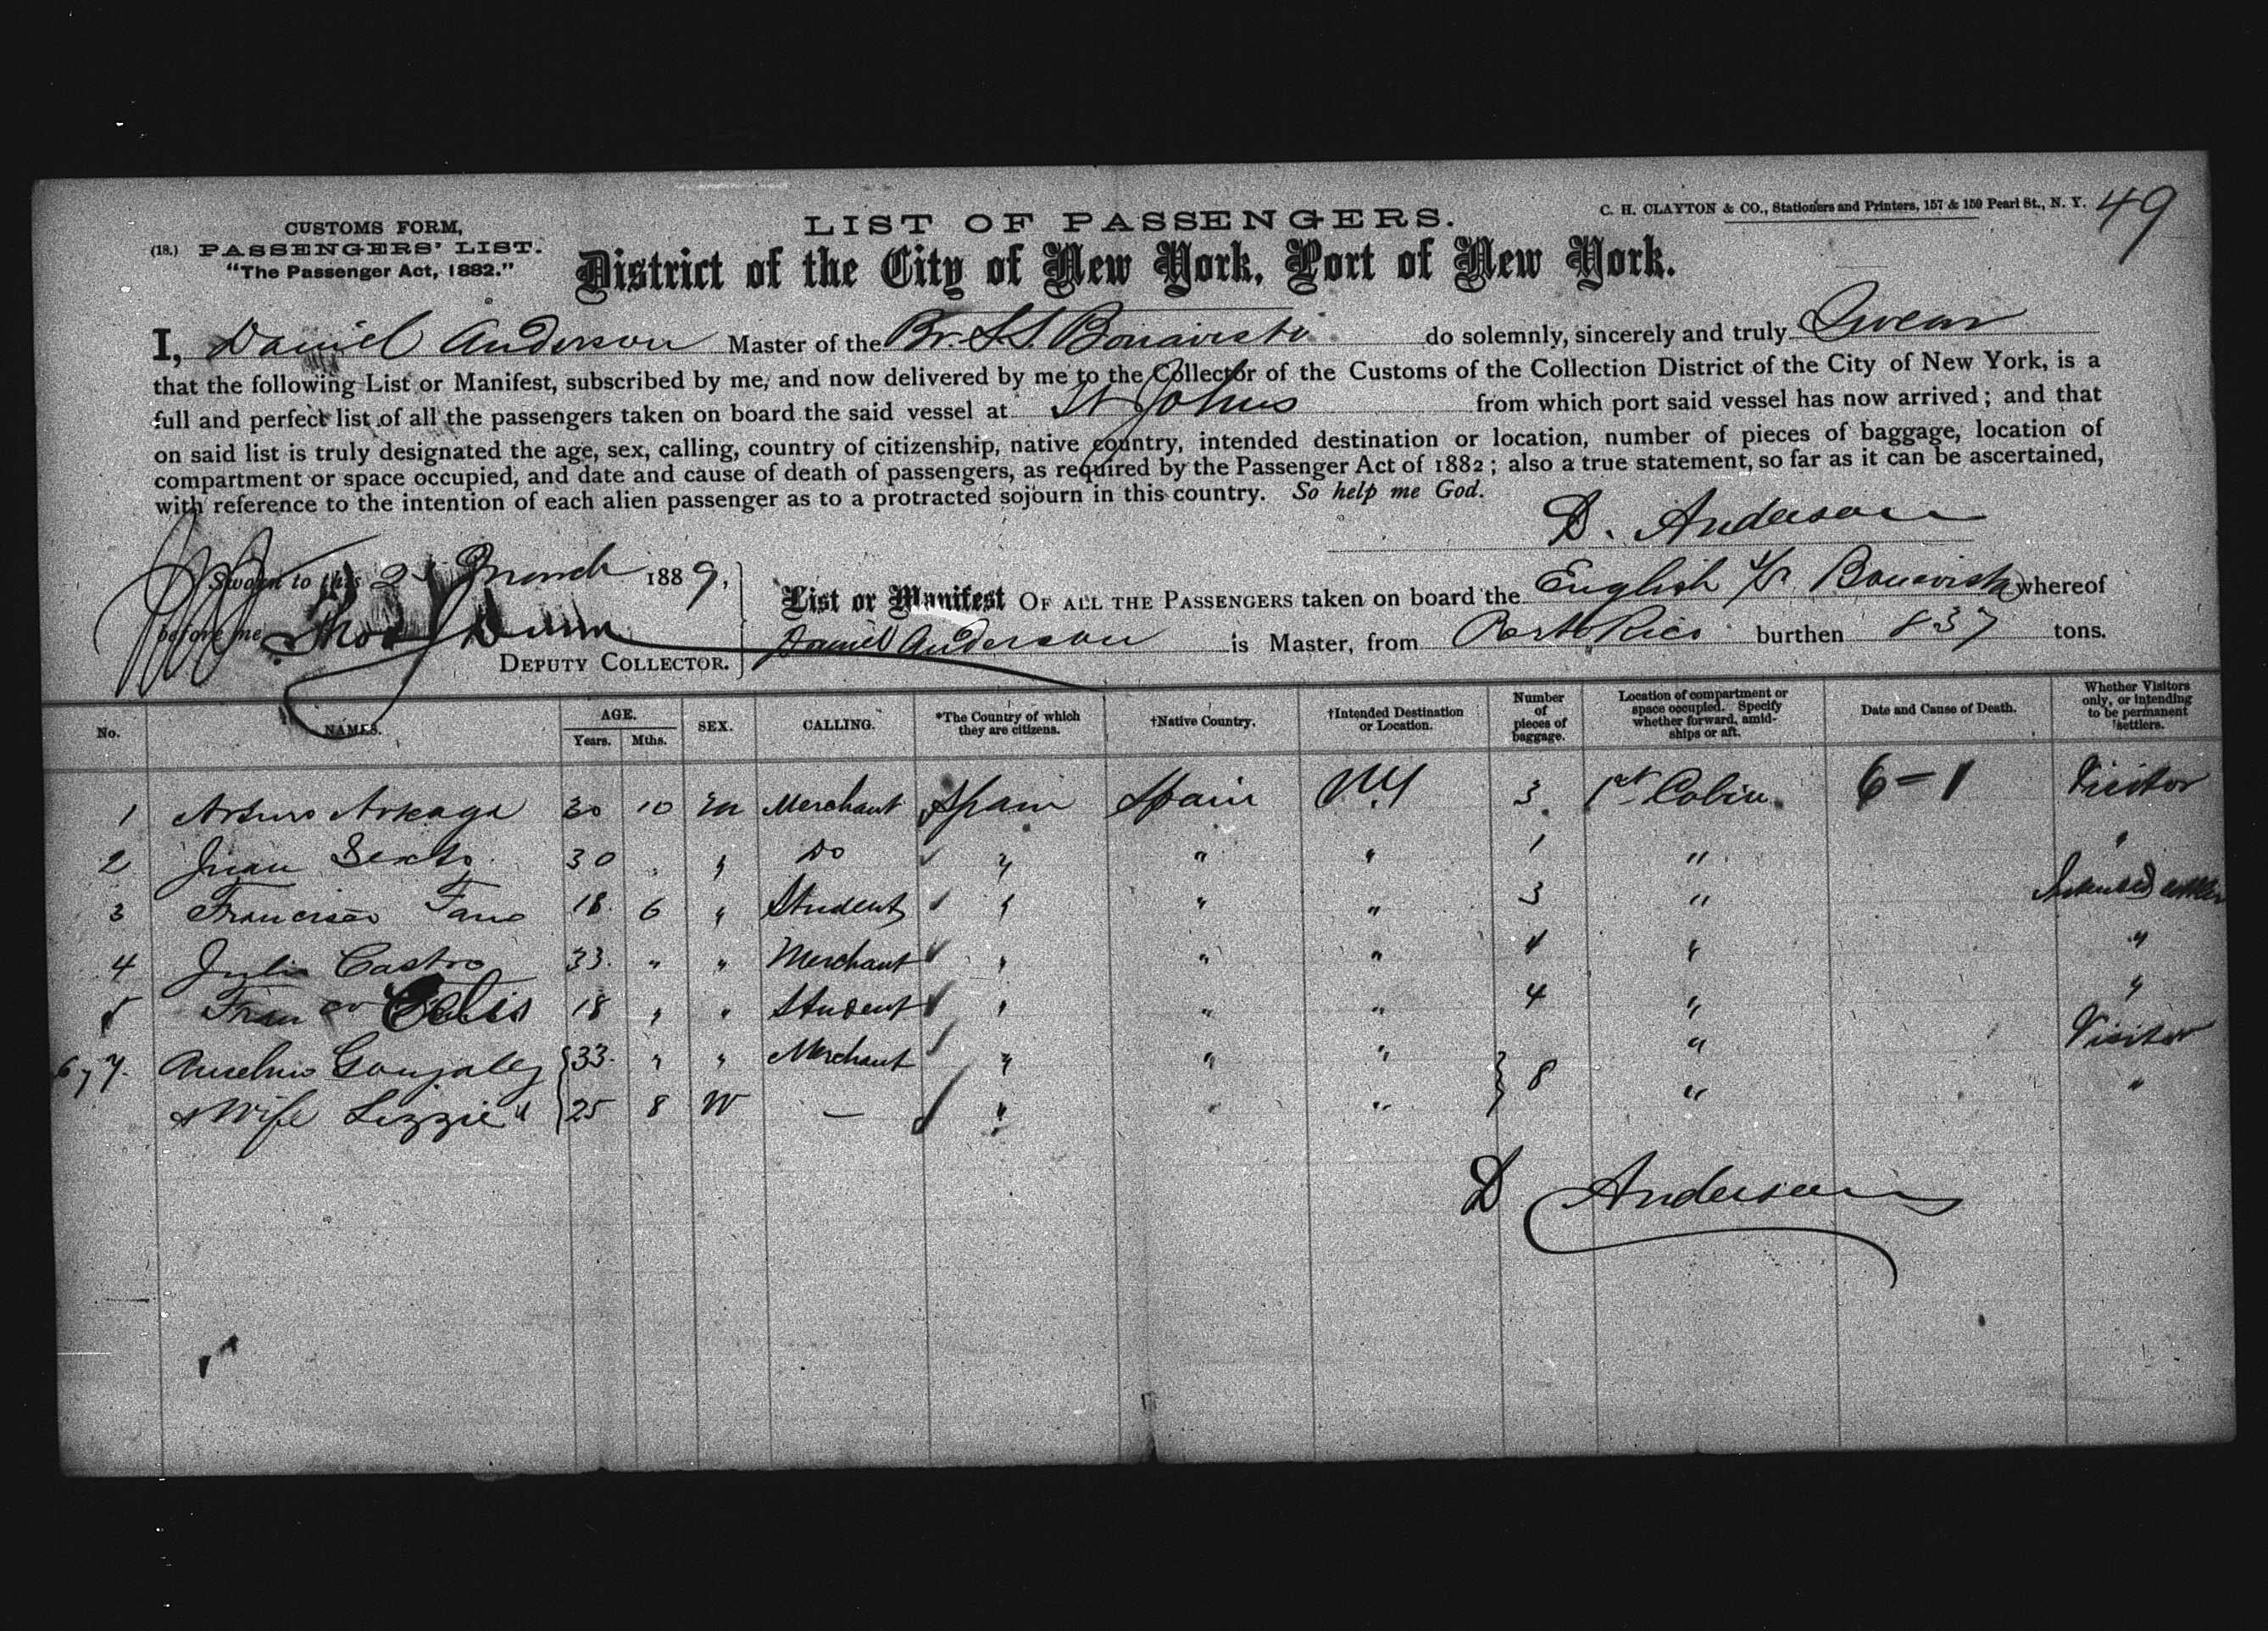 CUSTOMS FORM,
(18.) PASSENGERS' LIST.
"The Passenger Act, 1882."
LIST OF PASSENGERS.
C. H. CLAYTON & CO., Stationers and Printers, 157 & 159 Pearl St., N. Y.
49
District of the City of New York, Port of New York.
I, Daniel Anderson Master of the Br. SS Bonavista do solemnly, sincerely and truly Swear
that the following List or Manifest, subscribed by me, and now delivered by me to the Collector of the Customs of the Collection District of the City of New York, is a
full and perfect list of all the passengers taken on board the said vessel at St Johns from which port said vessel has now arrived; and that
on said list is truly designated the age, sex, calling, country of citizenship, native country, intended destination or location, number of pieces of baggage, location of
compartment or space occupied, and date and cause of death of passengers, as required by the Passenger Act of 1882; also a true statement, so far as it can be ascertained,
with reference to the intention of each alien passenger as to a protracted sojourn in this country. So help me God.
D. Anderson
Sworn to this March 1889,
before me Thos Dunn
DEPUTY COLLECTOR.
List or Manifest OF ALL THE PASSENGERS taken on board the English S/S Bonavista whereof
Daniel Anderson is Master, from Porto Rico burthen 837 tons.
No. NAMES. AGE. Years. Mths. SEX. CALLING. *The Country of which they are citizens. †Native Country. †Intended Destination or Location. Number of pieces of baggage. Location of compartment or space occupied. Specify whether forward, amidships or aft. Date and Cause of Death. Whether Visitors only, or intending to be permanent settlers.
1 Arturo 30 10 m Merchant Spain Spain NY 3 1st Cabin 6=1 Visitor
2 Juan 30 " " Do " " " 1 " "
3 Francisco Fano 18 6 " Student " " " 3 " Intended settler
4 Julio Castro 33 " " Merchant " " " 4 " "
5 Franco 18 " " Student " " " 4 " "
6 y 7 Anselmo Gonzalez 33 " " Merchant " " " 8 " Visitor
& Wife Lizzie " 25 8 W — " " " " "
D Anderson